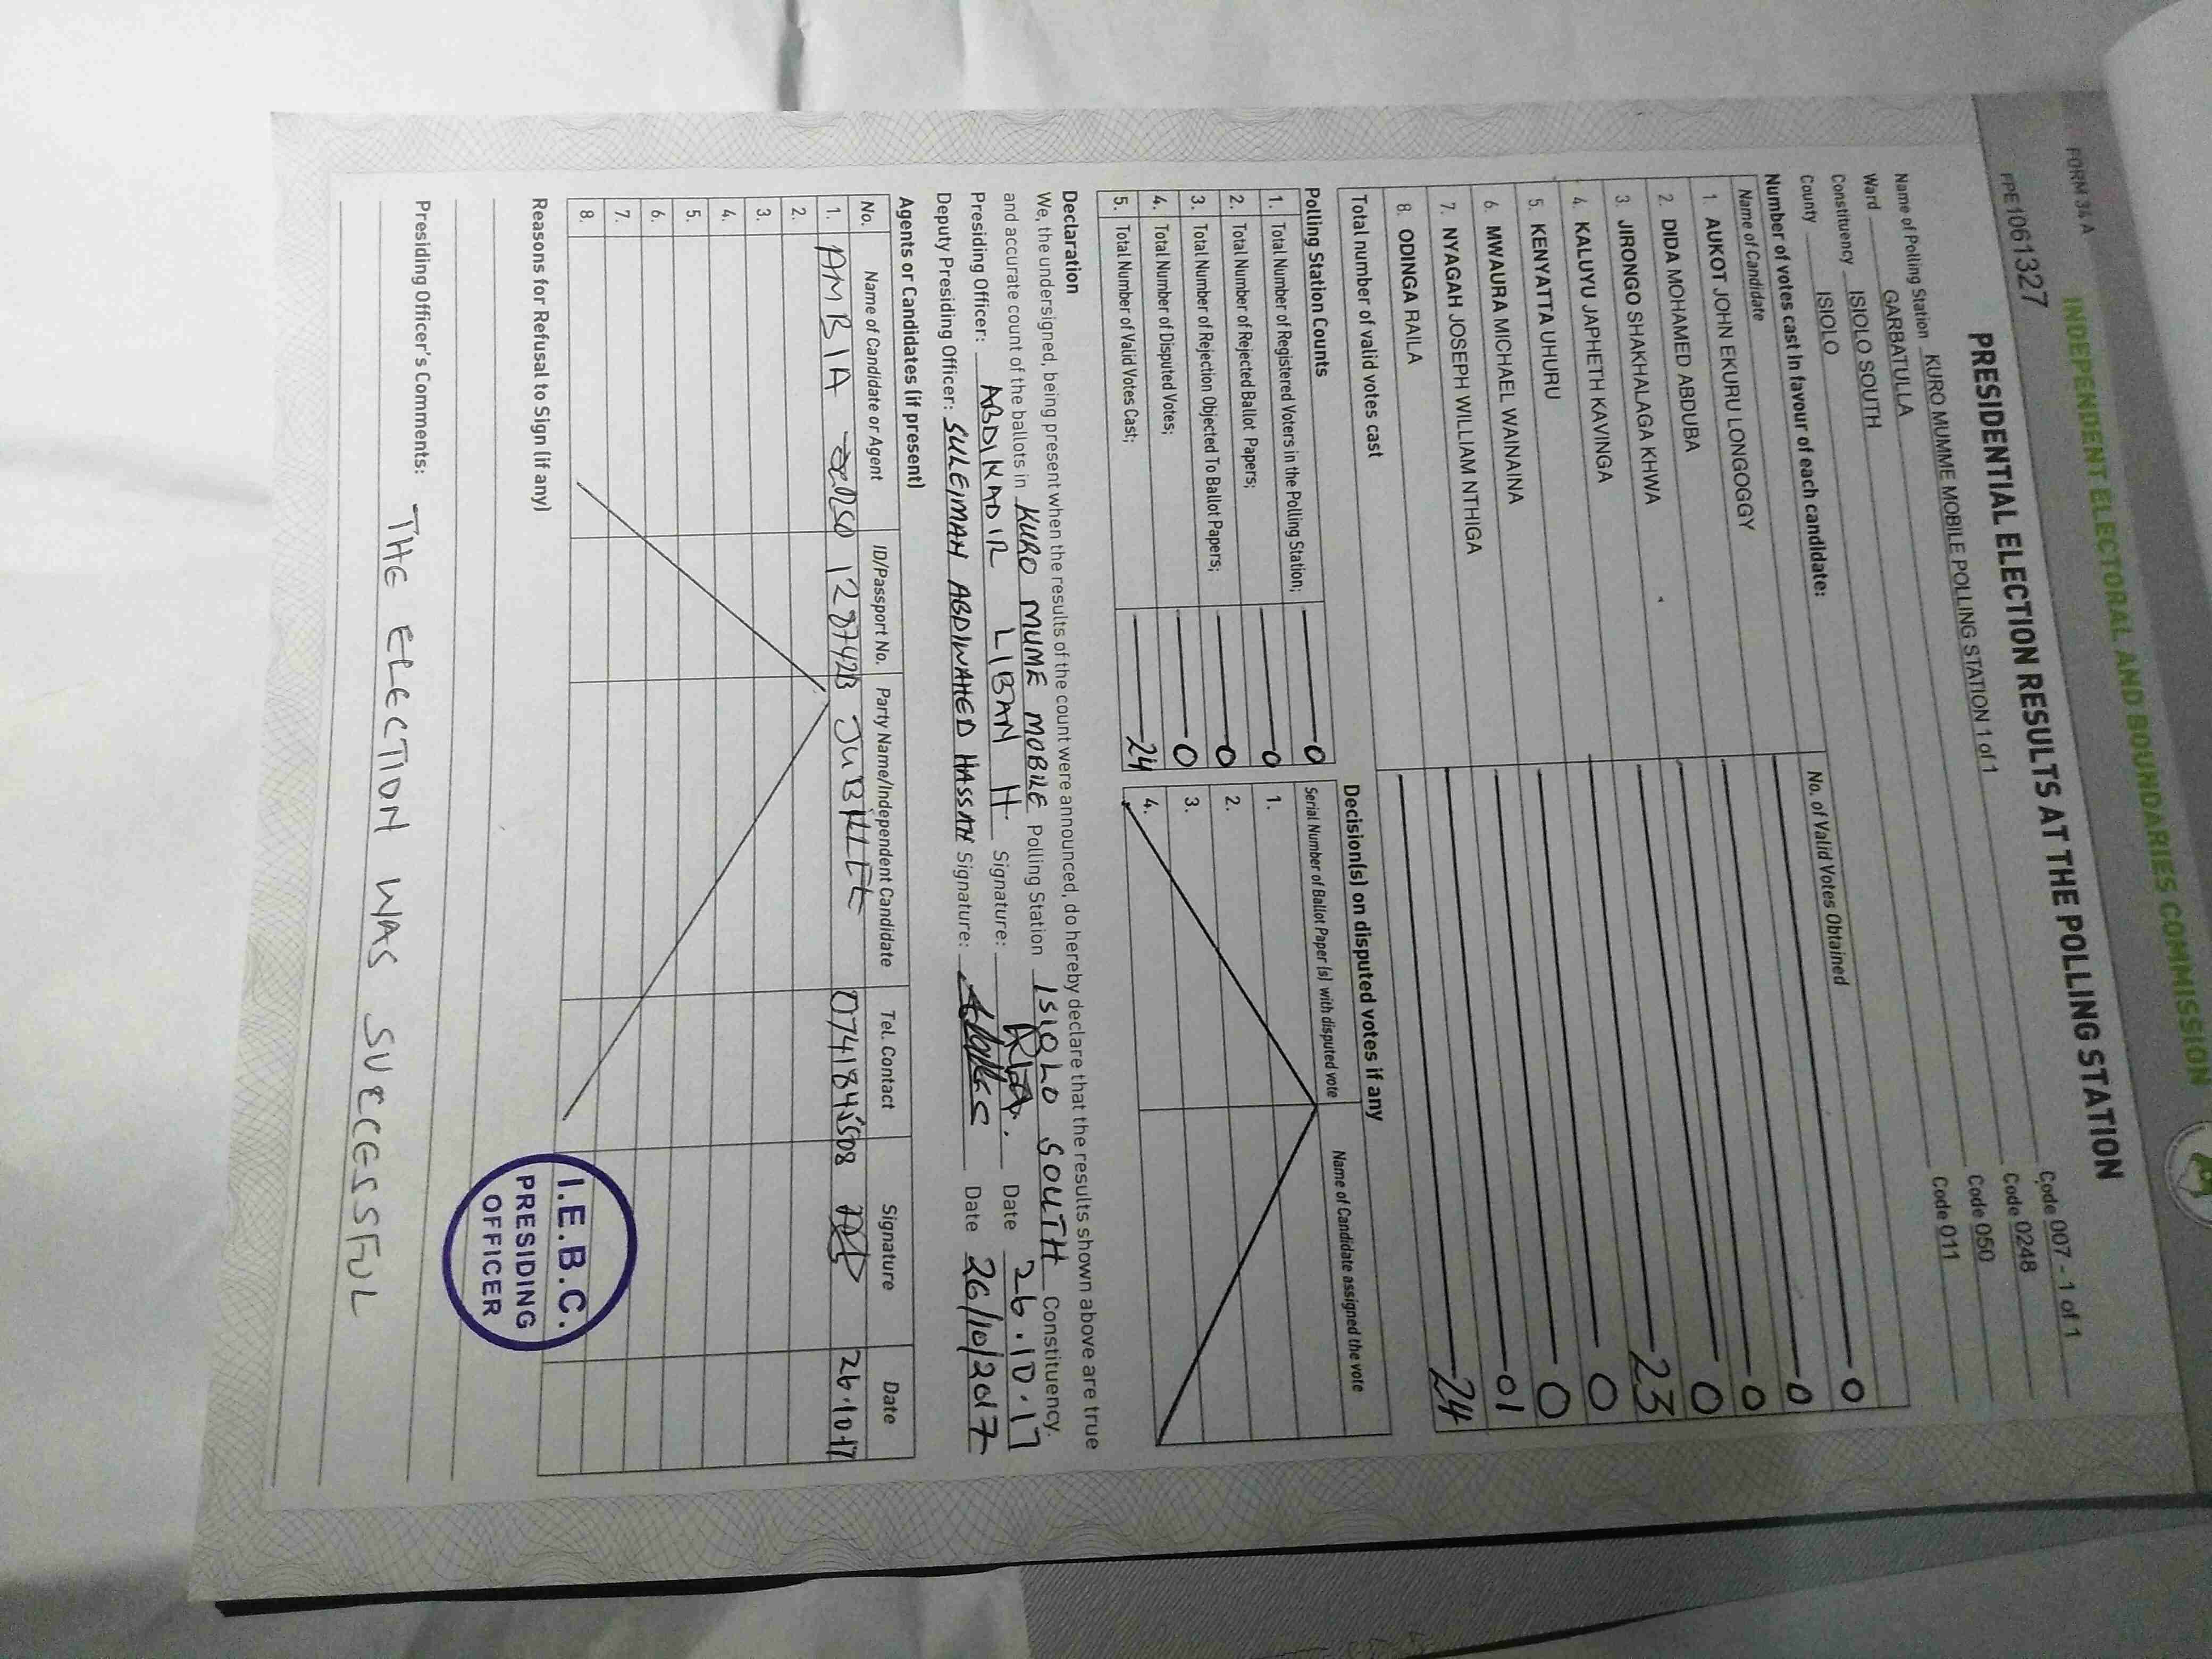 FORM 34 A
INDEPENDENT ELECTORAL AND BOUNDARIES COMMISSION
FPE1061327
PRESIDENTIAL ELECTION RESULTS AT THE POLLING STATION
Name of Polling Station KURO MUMME MOBILE POLLING STATION 1 of 1 Code 007 - 1 of 1
Ward GARBATULLA Code 0248
Constituency ISIOLO SOUTH Code 050
County ISIOLO Code 011
Number of votes cast in favour of each candidate:
Name of Candidate No. of Valid Votes Obtained
1. AUKOT JOHN EKURU LONGOGGY 0
2. DIDA MOHAMED ABDUBA 0
3. JIRONGO SHAKHALAGA KHWA 0
4. KALUYU JAPHETH KAVINGA 0
5. KENYATTA UHURU 23
6. MWAURA MICHAEL WAINAINA 0
7. NYAGAH JOSEPH WILLIAM NTHIGA 0
8. ODINGA RAILA 01
Total number of valid votes cast 24
Polling Station Counts
1. Total Number of Registered Voters in the Polling Station; 0
2. Total Number of Rejected Ballot Papers; 0
3. Total Number of Rejection Objected To Ballot Papers; 0
4. Total Number of Disputed Votes; 0
5. Total Number of Valid Votes Cast; 24
Decision(s) on disputed votes if any
Serial Number of Ballot Paper (s) with disputed vote Name of Candidate assigned the vote
1.
2.
3.
4.
Declaration
We, the undersigned, being present when the results of the count were announced, do hereby declare that the results shown above are true
and accurate count of the ballots in KURO MUME MOBILE Polling Station ISIOLO SOUTH Constituency.
Presiding Officer: ABDIKADIR LIBAN H. Signature: Date 26.10.17
Deputy Presiding Officer: SULEIMAN ABDIWAHED HASSAN Signature: Date 26/10/2017
Agents or Candidates (if present)
No. Name of Candidate or Agent ID/Passport No. Party Name/Independent Candidate Tel. Contact Signature Date
1. AMBIA JUBILEE 0741845508 26.10.17
2.
3.
4.
5.
6.
7.
8.
Reasons for Refusal to Sign (if any)
I.E.B.C.
PRESIDING
OFFICER
Presiding Officer's Comments: THE ELECTION WAS SUCCESSFUL